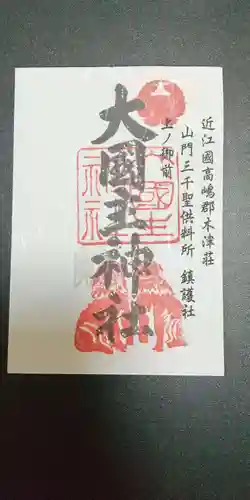 近江國高嶋郡木津荘
山門三千聖供料所 鎮護社
上ノ御前
大國主神社